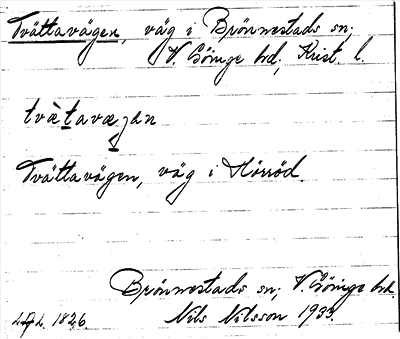 Tvättavägen, väg i Brönnestads sn;
V. Göinge hd; Krist. l.
tvètavægan
Tvättavägen, väg i Hörröd.
Brönnestads sn; V. Göinge hd.
Nils Nilsson 1933.
1826.